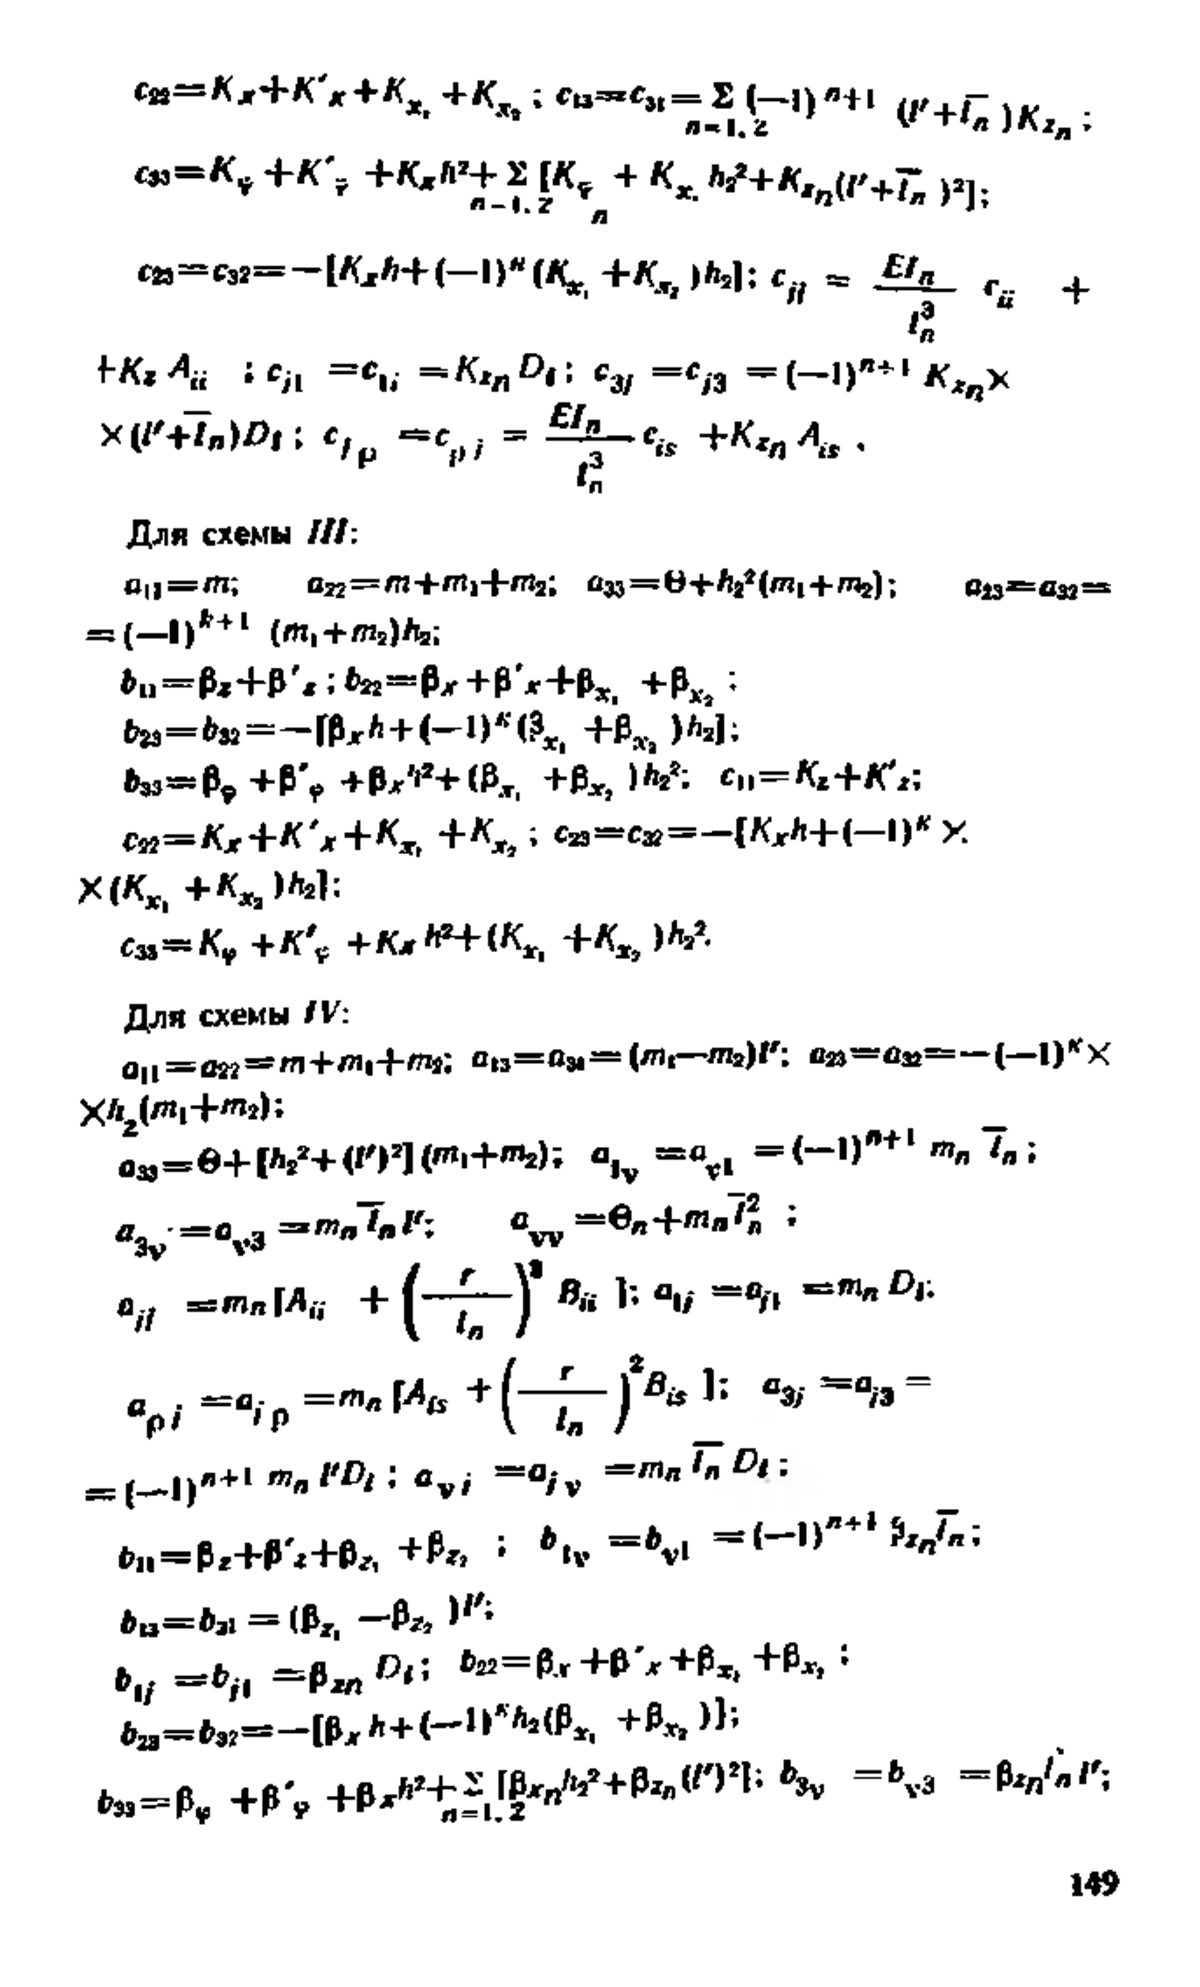 c₂₂=Kₓ+K′ₓ+K_{x₁}+K_{x₂}; c₁₃=c₃₁=Σ_{n=1,2}(—1)ⁿ⁺¹ (l′+l̅ₙ)K_{zₙ};
c₃₃=K_φ+K′_φ+Kₓh²+Σ_{n=1,2}[K_{φₙ}+K_{x.}h₂²+K_{zₙ}(l′+l̅ₙ)²];
c₂₃=c₃₂=—[Kₓh+(—1)ᴷ(K_{x₁}+K_{x₂})h₂]; c_{jj} = \frac{EIₙ}{lₙ³} c_{ii} +
+K_z A_{ii}; c_{j1}=c_{1j}=K_{zn}D_i; c_{3j}=c_{j3}=(—1)ⁿ⁺¹ K_{zn}×
×(l′+l̅ₙ)D_i; c_{jρ}=c_{ρj} = \frac{EIₙ}{lₙ³} c_{is}+K_{zn}A_{is}.
Для схемы III:
a₁₁=m; a₂₂=m+m₁+m₂; a₃₃=Θ+h₂²(m₁+m₂); a₂₃=a₃₂=
=(—1)ᵏ⁺¹ (m₁+m₂)h₂;
b₁₁=β_z+β′_z; b₂₂=βₓ+β′ₓ+β_{x₁}+β_{x₂};
b₂₃=b₃₂=—[βₓh+(—1)ᴷ(β_{x₁}+β_{x₂})h₂];
b₃₃=β_φ+β′_φ+βₓh²+(β_{x₁}+β_{x₂})h₂²; c₁₁=K_z+K′_z;
c₂₂=Kₓ+K′ₓ+K_{x₁}+K_{x₂}; c₂₃=c₃₂=—[Kₓh+(—1)ᴷ×
×(K_{x₁}+K_{x₂})h₂];
c₃₃=K_φ+K′_φ+Kₓh²+(K_{x₁}+K_{x₂})h₂².
Для схемы IV:
a₁₁=a₂₂=m+m₁+m₂; a₁₃=a₃₁=(m₁—m₂)l′; a₂₃=a₃₂=—(—1)ᴷ×
×h₂(m₁+m₂);
a₃₃=Θ+[h₂²+(l′)²](m₁+m₂); a_{1ν}=a_{ν1}=(—1)ⁿ⁺¹ mₙ l̅ₙ;
a_{3ν}=a_{ν3}=mₙl̅ₙl′; a_{νν}=Θₙ+mₙl̅ₙ²;
a_{jj}=mₙ[A_{ii}+(\frac{r}{lₙ})² B_{ii}]; a_{1j}=a_{j1}=mₙD_i;
a_{ρj}=a_{jρ}=mₙ[A_{is}+(\frac{r}{lₙ})²B_{is}]; a_{3j}=a_{j3}=
=(—1)ⁿ⁺¹ mₙl′D_i; a_{νj}=a_{jν}=mₙl̅ₙD_i;
b₁₁=β_z+β′_z+β_{z₁}+β_{z₂}; b_{1ν}=b_{ν1}=(—1)ⁿ⁺¹ β_{zn}l̅ₙ;
b₁₃=b₃₁=(β_{z₁}—β_{z₂})l′;
b_{1j}=b_{j1}=β_{zn}D_i; b₂₂=βₓ+β′ₓ+β_{x₁}+β_{x₂};
b₂₃=b₃₂=—[βₓh+(—1)ᴷh₂(β_{x₁}+β_{x₂})];
b₃₃=β_φ+β′_φ+βₓh²+Σ_{n=1,2}[β_{xn}h₂²+β_{zn}(l′)²]; b_{3ν}=b_{ν3}=β_{zn}l̅ₙl′;
149